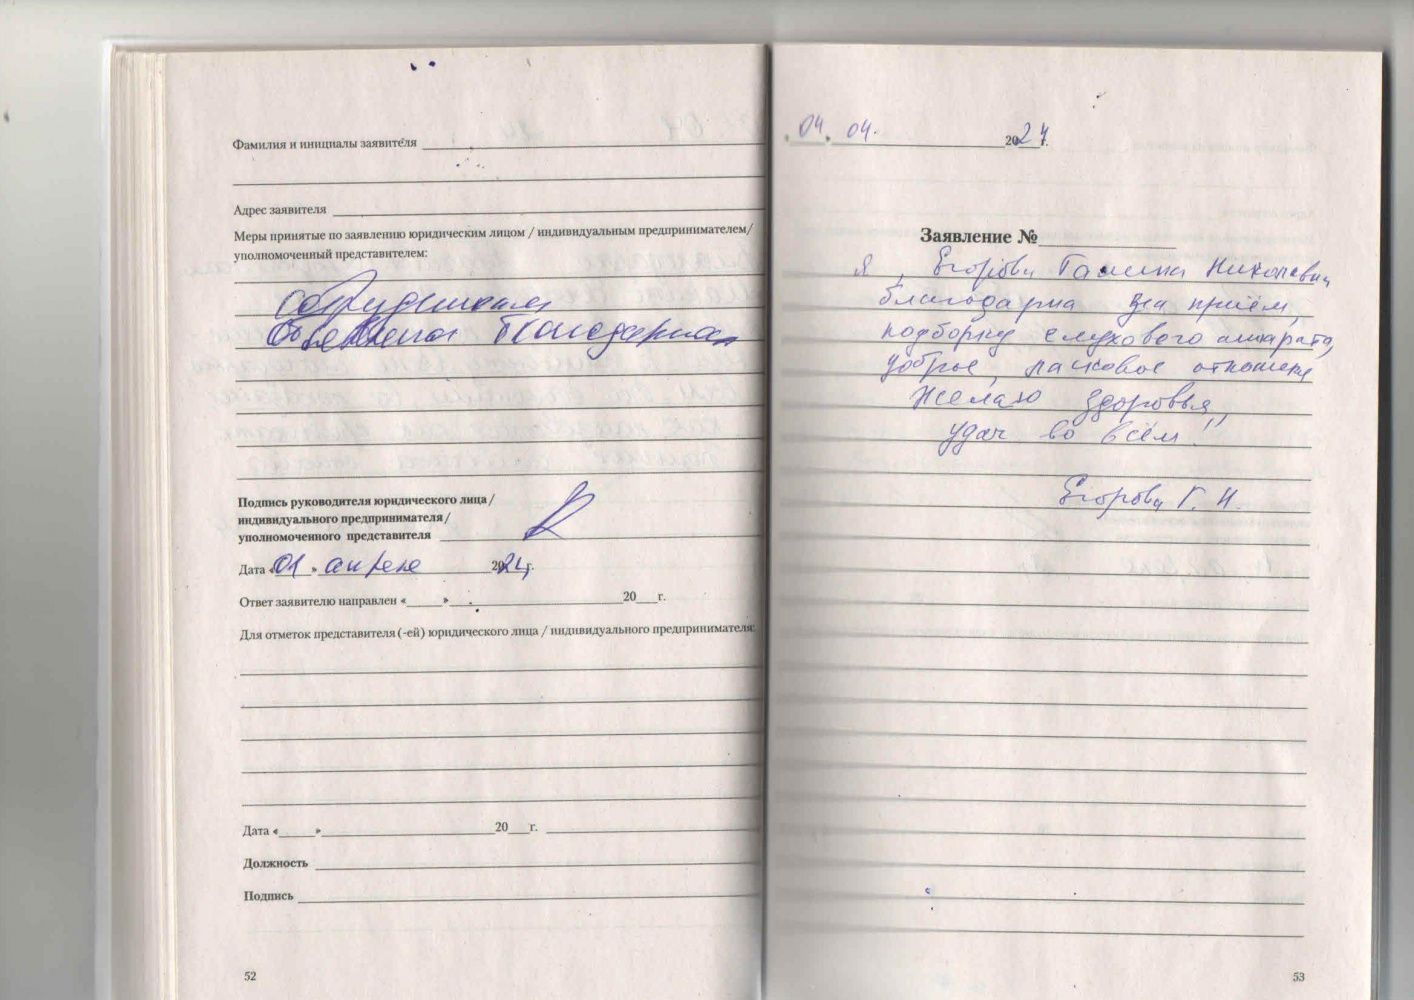 Фамилия и инициалы заявителя
Адрес заявителя
Меры принятые по заявлению юридическим лицом / индивидуальным предпринимателем/
уполномоченный представителем:
Сотрудникам
Объявлена благодарность
Подпись руководителя юридического лица /
индивидуального предпринимателя /
уполномоченного представителя
Дата «01» апреля 2024г.
Ответ заявителю направлен «____»____ 20__г.
Для отметок представителя (-ей) юридического лица / индивидуального предпринимателя:
Дата «____»____ 20__г.
Должность
Подпись
52
04. 04. 2024г.
Заявление №
Я, Егорова Галина Николаевна
благодарна за приём,
подборку слухового аппарата,
доброе, ласковое отношение
Желаю здоровья,
удач во всём!
Егорова Г. Н.
53